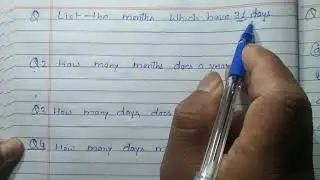 Q List the months which have 31 days
Q2 How many months does a year
Q3 How many days does
Q4 How many days
Q